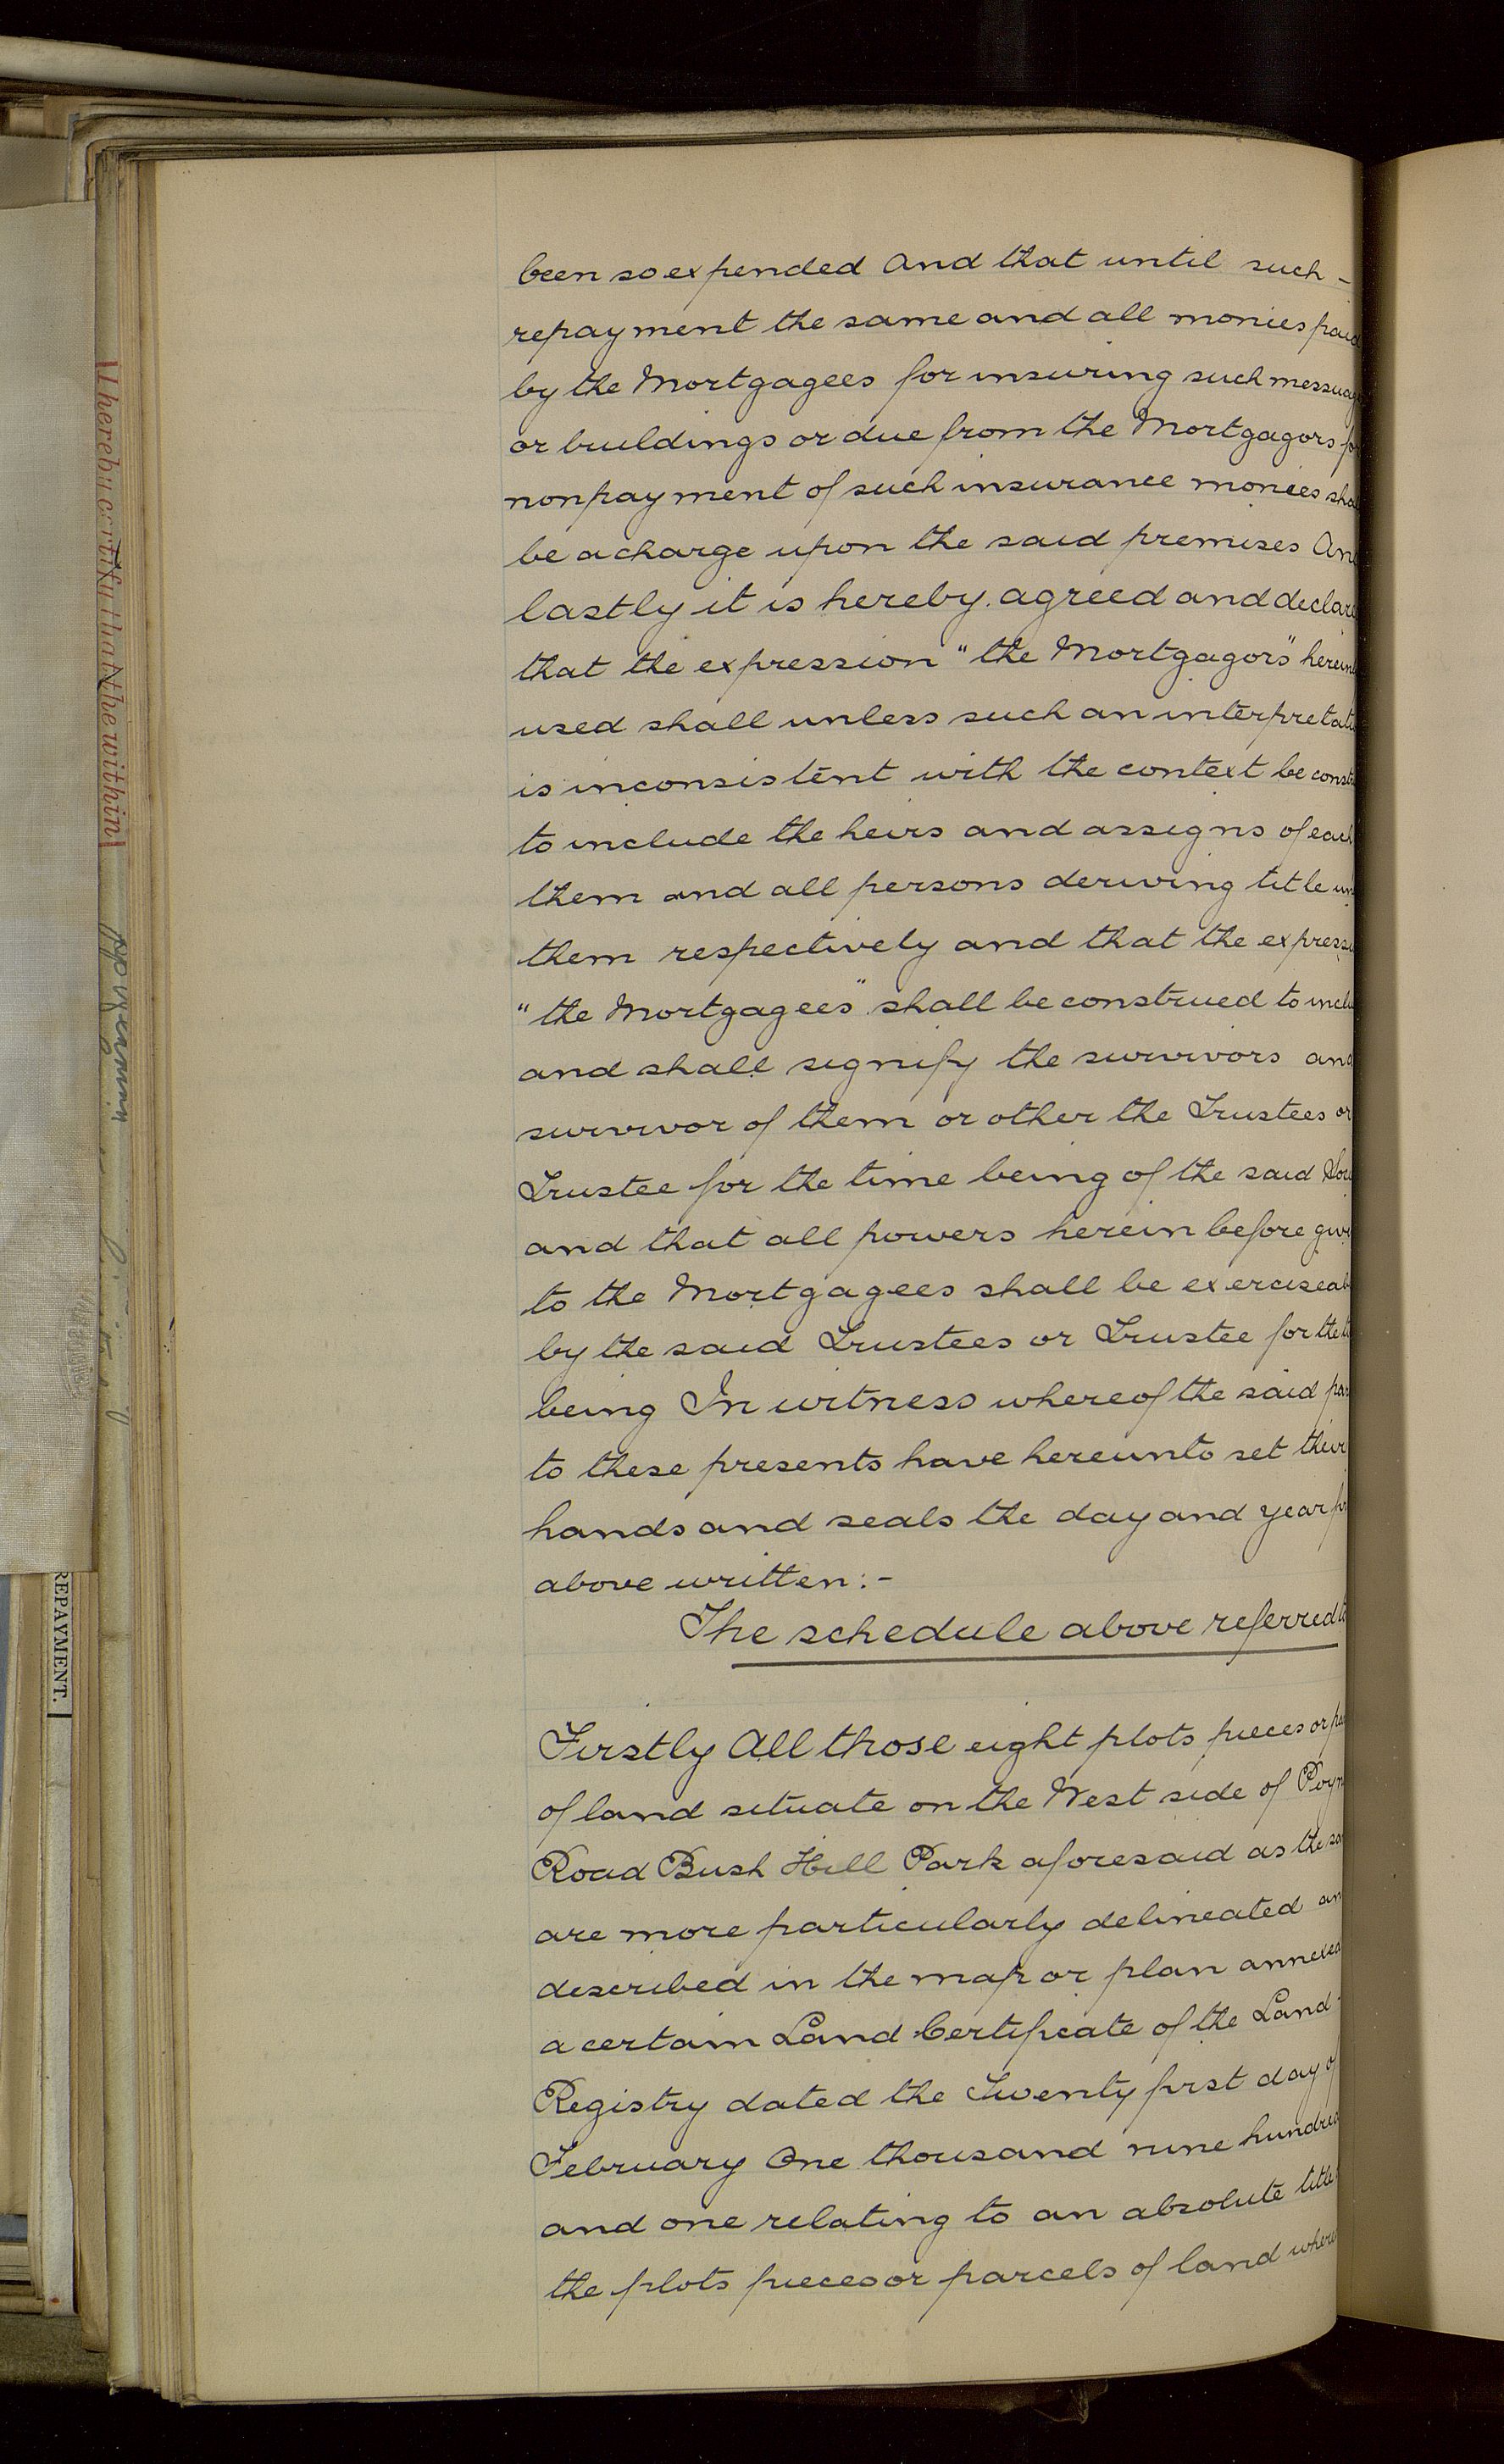 been so expended And that until such -
repayment the same and all monies paid
by the Mortgagees for insuring such messuag
or buildings or due from the Mortgagors fo
nonpayment of such insurance monies sha
be a charge upon the said premises An
lastly it is hereby agreed and declare
that the expression "the Mortgagors" herein
used shall unless such an interpretati
is inconsistent with the context be constr
to include the heirs and assigns of each
them and all persons deriving title un
them respectively and that the expressi
"the Mortgagees" shall be construed to inclu
and shall signify the survivors and
survivor of them or other the Trustees or
Trustee for the time being of the said
and that all powers herein before give
to the Mortgagees shall be exerciseab
by the said Trustees or Trustee for the ti
being In witness whereof the said par
to these presents have hereunto set their
hands and seals the day and year fir
above written:-
The schedule above referred to
Firstly All those eight plots pieces or par
of land situate on the West side of Poyn
Road Bush Hill Park aforesaid as the sa
are more particularly delineated an
described in the map or plan annexed
a certain Land Certificate of the Land -
Registry dated the Twenty first day of
February One thousand nine hundred
and one relating to an absolute title
the plots pieces or parcels of land where
I hereby certify that the within
REPAYMENT.